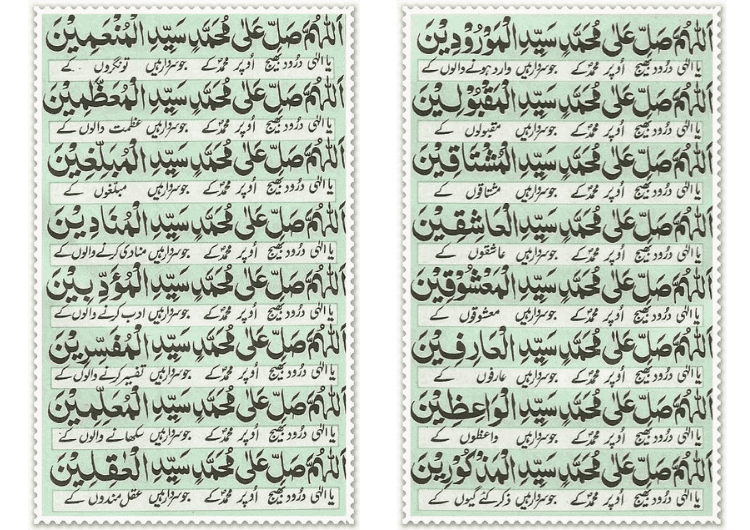 اَللّٰهُمَّ صَلِّ عَلٰى مُحَمَّدٍ سَيِّدِ الْمَوْرُوْدِيْنَ
یا الٰہی درود بھیج اُوپر محمدؐ کے جو سردار ہیں وارد ہونے والوں کے
اَللّٰهُمَّ صَلِّ عَلٰى مُحَمَّدٍ سَيِّدِ الْمَقْبُوْلِيْنَ
یا الٰہی درود بھیج اُوپر محمدؐ کے جو سردار ہیں مقبولوں کے
اَللّٰهُمَّ صَلِّ عَلٰى مُحَمَّدٍ سَيِّدِ الْمُشْتَاقِيْنَ
یا الٰہی درود بھیج اُوپر محمدؐ کے جو سردار ہیں مشتاقوں کے
اَللّٰهُمَّ صَلِّ عَلٰى مُحَمَّدٍ سَيِّدِ الْعَاشِقِيْنَ
یا الٰہی درود بھیج اُوپر محمدؐ کے جو سردار ہیں عاشقوں کے
اَللّٰهُمَّ صَلِّ عَلٰى مُحَمَّدٍ سَيِّدِ الْمَعْشُوْقِيْنَ
یا الٰہی درود بھیج اُوپر محمدؐ کے جو سردار ہیں معشوقوں کے
اَللّٰهُمَّ صَلِّ عَلٰى مُحَمَّدٍ سَيِّدِ الْعَارِفِيْنَ
یا الٰہی درود بھیج اُوپر محمدؐ کے جو سردار ہیں عارفوں کے
اَللّٰهُمَّ صَلِّ عَلٰى مُحَمَّدٍ سَيِّدِ الْوَاعِظِيْنَ
یا الٰہی درود بھیج اُوپر محمدؐ کے جو سردار ہیں واعظوں کے
اَللّٰهُمَّ صَلِّ عَلٰى مُحَمَّدٍ سَيِّدِ الْمَذْكُوْرِيْنَ
یا الٰہی درود بھیج اُوپر محمدؐ کے جو سردار ہیں ذکر کئے گیوں کے
اَللّٰهُمَّ صَلِّ عَلٰى مُحَمَّدٍ سَيِّدِ الْمُنْعَمِيْنَ
یا الٰہی درود بھیج اُوپر محمدؐ کے جو سردار ہیں تونگروں کے
اَللّٰهُمَّ صَلِّ عَلٰى مُحَمَّدٍ سَيِّدِ الْمُعَظَّمِيْنَ
یا الٰہی درود بھیج اُوپر محمدؐ کے جو سردار ہیں عظمت والوں کے
اَللّٰهُمَّ صَلِّ عَلٰى مُحَمَّدٍ سَيِّدِ الْمُبَلِّغِيْنَ
یا الٰہی درود بھیج اُوپر محمدؐ کے جو سردار ہیں مبلغوں کے
اَللّٰهُمَّ صَلِّ عَلٰى مُحَمَّدٍ سَيِّدِ الْمُنَادِيْنَ
یا الٰہی درود بھیج اُوپر محمدؐ کے جو سردار ہیں منادی کرنے والوں کے
اَللّٰهُمَّ صَلِّ عَلٰى مُحَمَّدٍ سَيِّدِ الْمُؤَدِّبِيْنَ
یا الٰہی درود بھیج اُوپر محمدؐ کے جو سردار ہیں ادب کرنے والوں کے
اَللّٰهُمَّ صَلِّ عَلٰى مُحَمَّدٍ سَيِّدِ الْمُفَسِّرِيْنَ
یا الٰہی درود بھیج اُوپر محمدؐ کے جو سردار ہیں تفسیر کرنے والوں کے
اَللّٰهُمَّ صَلِّ عَلٰى مُحَمَّدٍ سَيِّدِ الْمُعَلِّمِيْنَ
یا الٰہی درود بھیج اُوپر محمدؐ کے جو سردار ہیں سکھانے والوں کے
اَللّٰهُمَّ صَلِّ عَلٰى مُحَمَّدٍ سَيِّدِ الْعٰقِلِيْنَ
یا الٰہی درود بھیج اُوپر محمدؐ کے جو سردار ہیں عقل مندوں کے